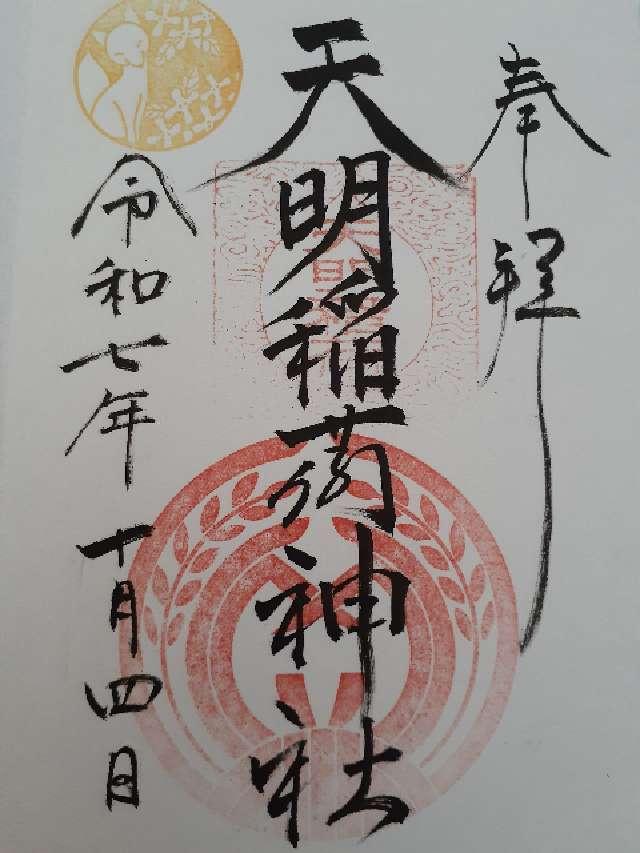 奉拝
天明稲荷神社
令和七年十月四日